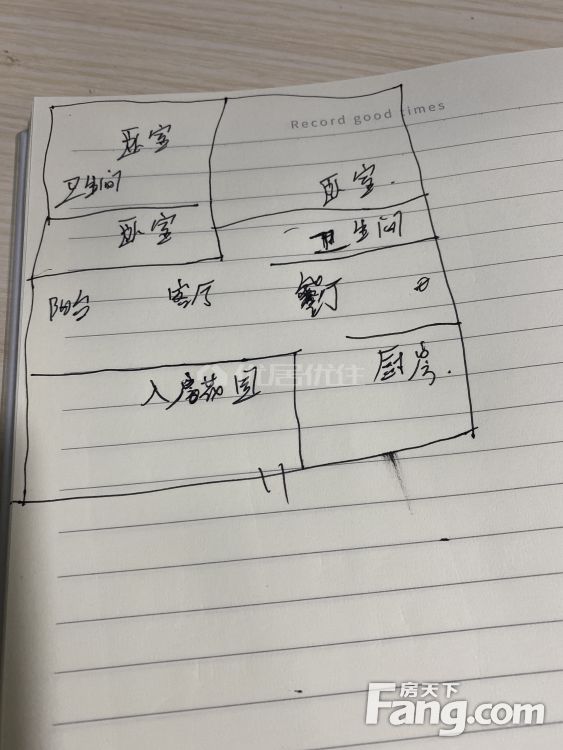 Record good times
卧室
卫生间
卧室
卧室
卫生间
阳台
客厅
餐厅
厨房
入户花园
优居优住
房天下
Fang.com